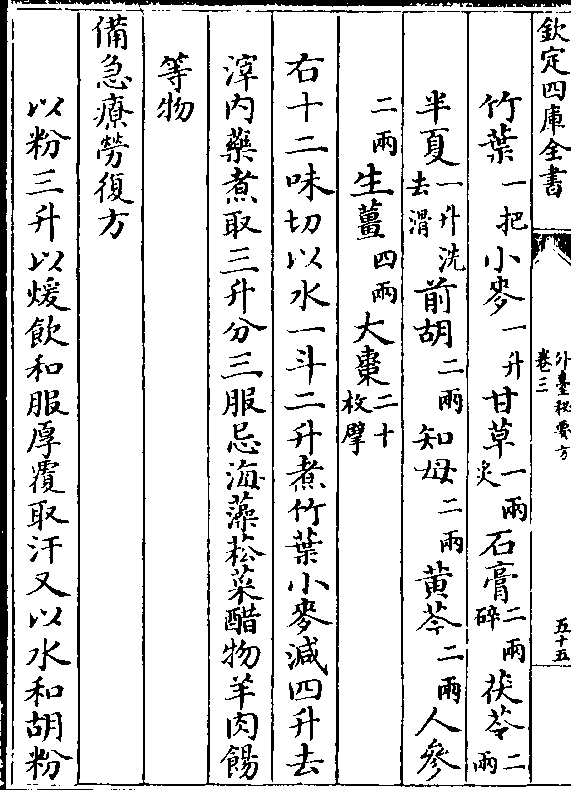 欽定四庫全書
外臺秘要方
卷三
五十五
竹葉一把小麥一升甘草一兩炙石膏二兩碎茯苓二兩
半夏一升洗去滑前胡二兩知母二兩黃芩二兩人參
二兩生薑四兩大棗二十枚擘
右十二味切以水一斗二升煮竹葉小麥減四升去
滓内藥煮取三升分三服忌海藻菘菜醋物羊肉餳
等物
備急療勞復方
以粉三升以煖飲和服厚覆取汗又以水和胡粉